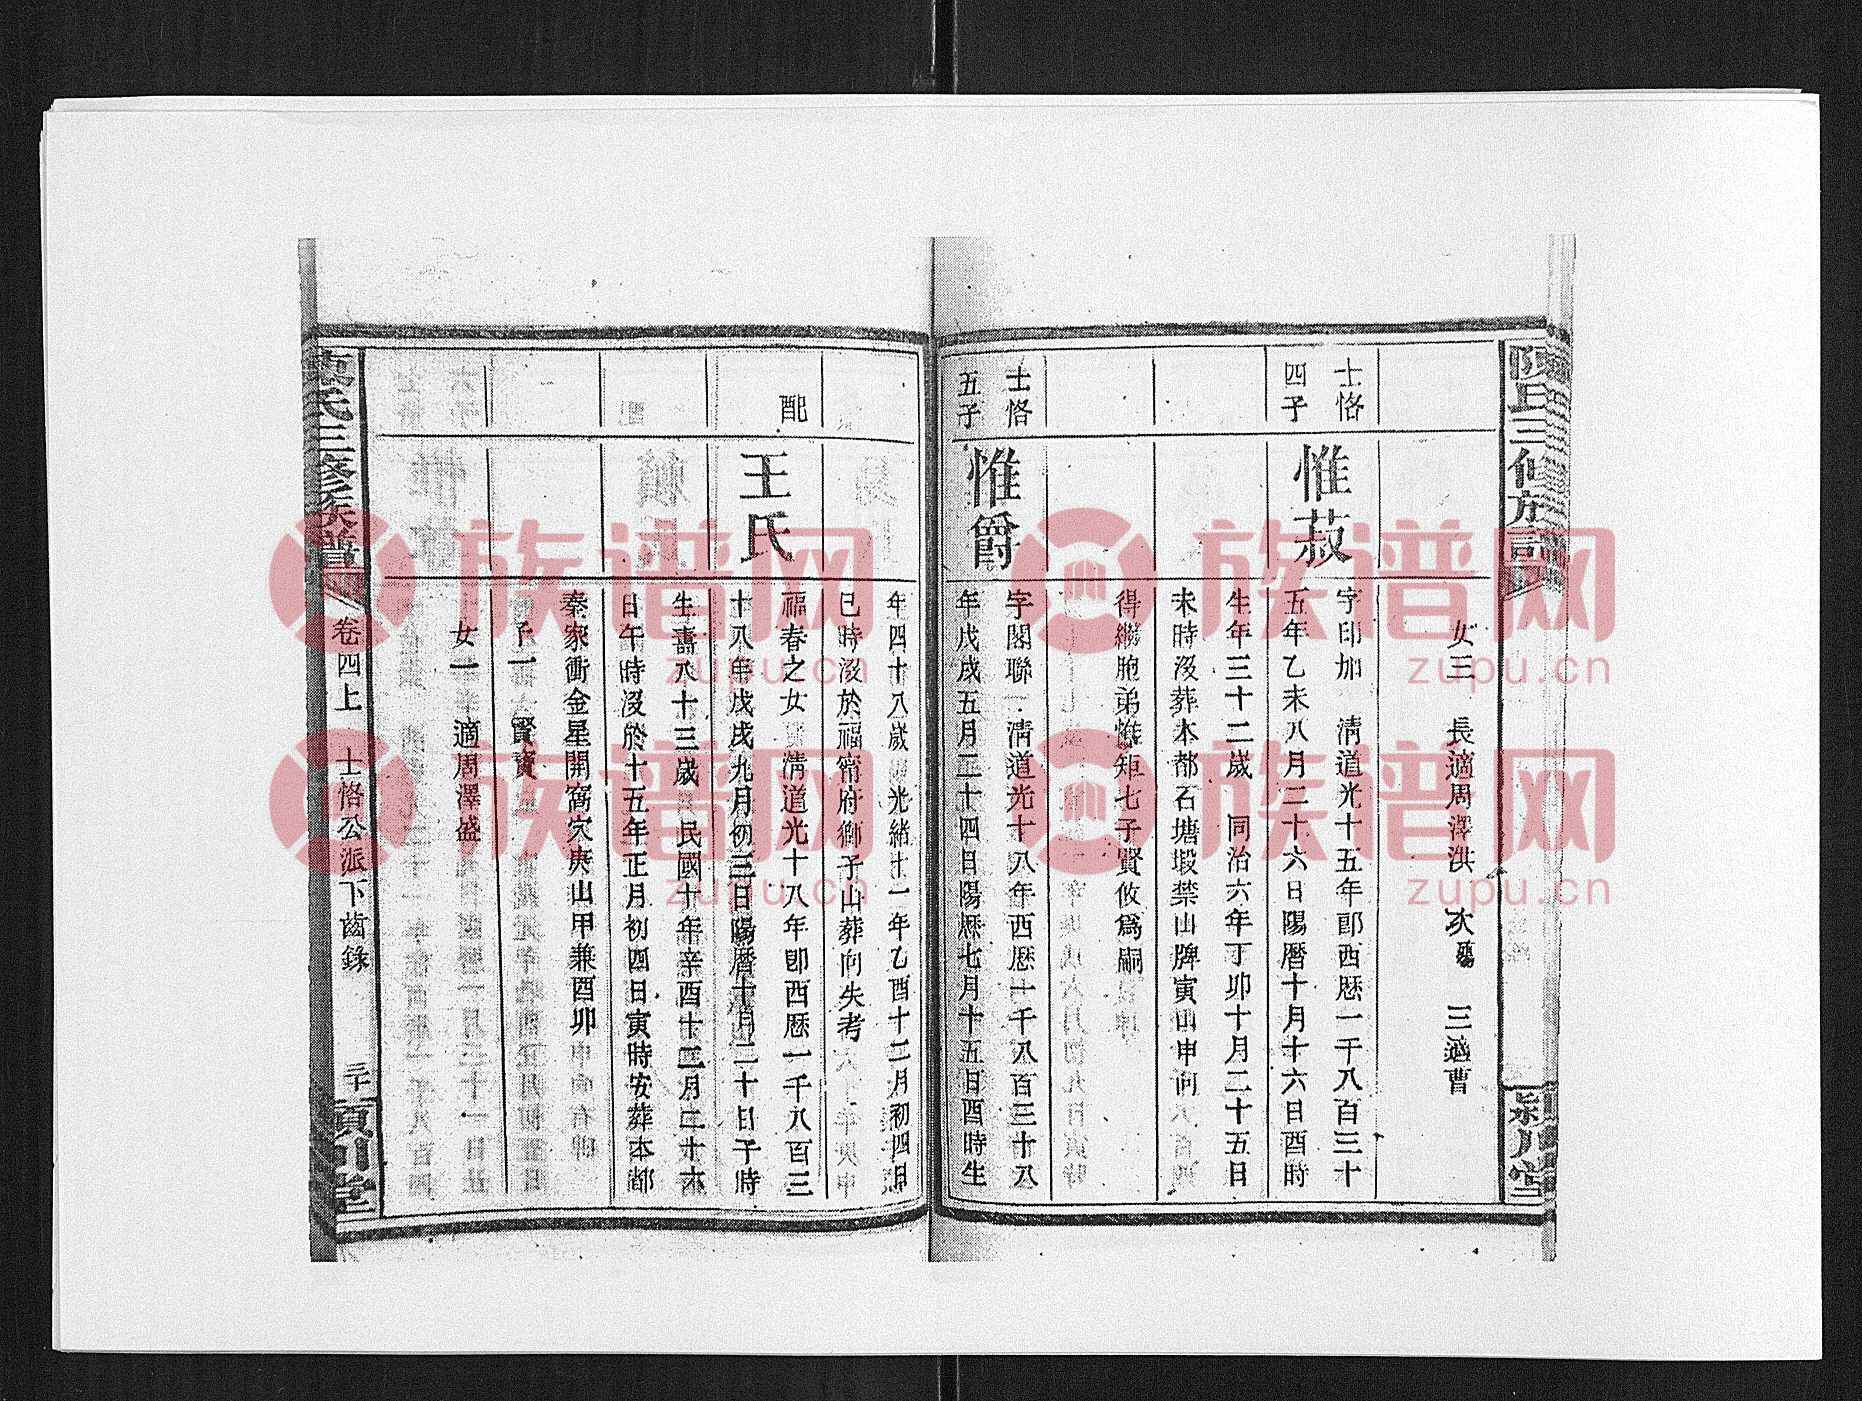 陳氏三修族譜
潁川堂
女三 長適周澤洪 次殤 三適曹
士恪
四子
惟菽
字印加 清道光十五年卽西歷一千八百三十
五年乙未八月二十六日陽曆十月十六日酉時
生年三十二歲 同治六年丁卯十月二十五日
未時沒葬本都石塘塅禁山牌寅山申向
得繼胞弟惟矩七子賢攸爲嗣
士恪
五子
惟爵
字閣聯 清道光十八年西歷一千八百三十八
年戊戌五月二十四日陽歷七月十五日酉時生
年四十八歲 光緒十一年乙酉十二月初四日
巳時沒於福甯府獅子山葬向失考
配
王氏
福春之女 清道光十八年卽西歷一千八百三
十八年戊戌九月初三日陽曆十月二十日子時
生壽八十三歲 民國十年辛酉十二月二十六
日午時沒於十五年正月初四日寅時安葬本都
秦家衝金星開窩穴庚山甲兼酉卯
子一 賢寶
女一 適周澤盛
陳氏三修族譜
卷四上 士恪公派下齒錄
三十
潁川堂
族谱网
zupu.cn
族谱网
zupu.cn
族谱网
zupu.cn
族谱网
zupu.cn